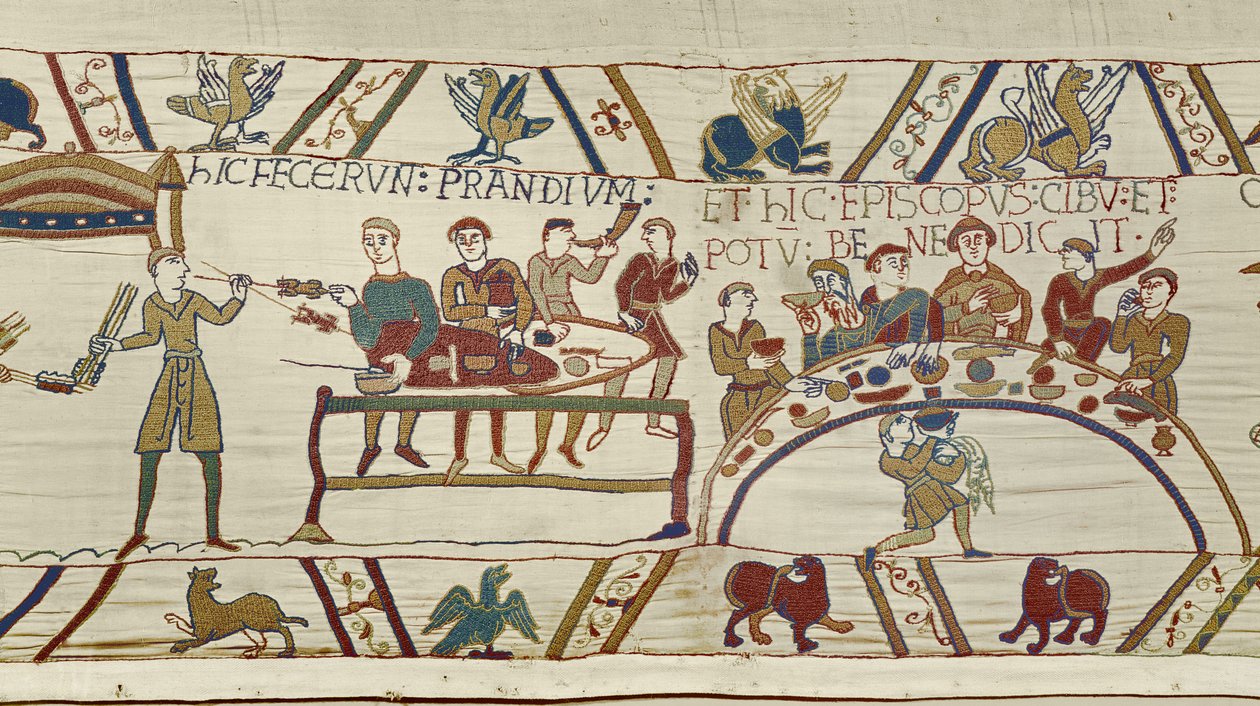 hIC FECERVN: PRANDIVM:
ET· hIC· EPISCOPVS: CIBV̅: ET:
POTV̅: BE NE DIC IT·